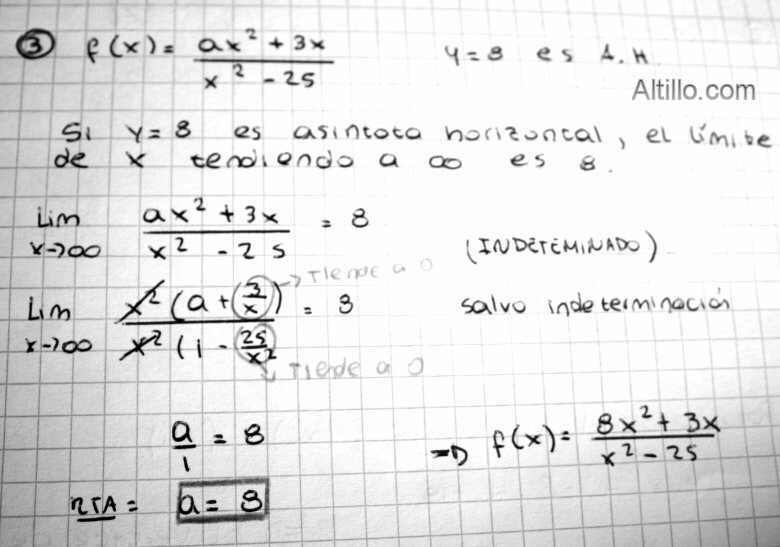 ③ f(x) = ax² + 3x / x² - 25    y = 8 es A.H
Altillo.com
Si y = 8 es asintota horizontal, el límite
de x tendiendo a ∞ es 8.
Lim x→∞ ax² + 3x / x² - 25 = 8 (INDETEMINADO)
Lim x→∞ x² (a + (3/x)) / x² (1 - 25/x² = 8 salvo indeterminación
→ Tiende a 0
↳ Tiende a 0
a/1 = 8 ⇒ f(x) = 8x² + 3x / x² - 25
RTA = a = 8